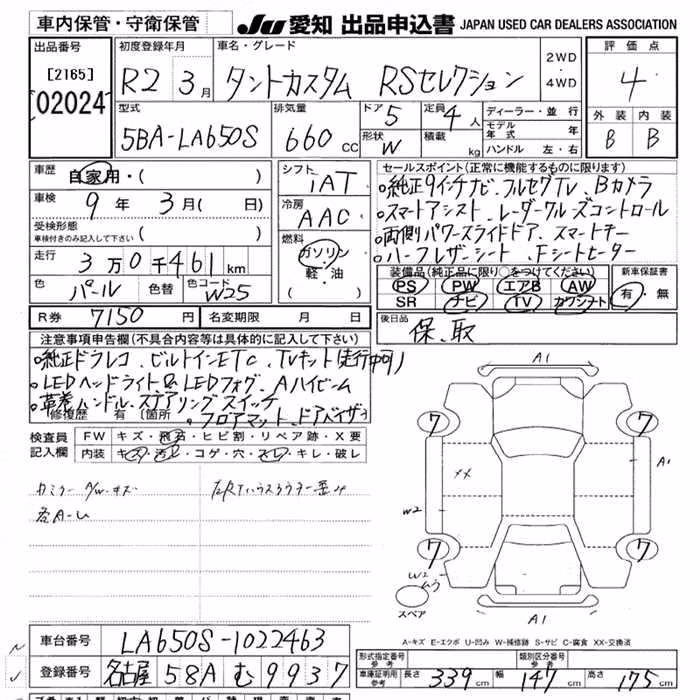 車内保管・守衛保管 JU 愛知 出品申込書 JAPAN USED CAR DEALERS ASSOCIATION
出品番号 [2165] 02024
初度登録年月 R2 3月
車名・グレード タントカスタム RSセレクション 2WD 4WD
評価点 4
外装 内装
B B
型式 5BA-LA650S
排気量 660 cc
ドア 5 定員 4人
形状 W 積載 kg
ディーラー・並行
モデル年式 年
ハンドル 左・右
車歴 自家用・( )
車検 9年 3月( 日)
受検形態
車検付きのみ記入して下さい ( )
走行 3万0千461km
色 パール 色替 色コード W25
シフト IAT
冷房 AAC
燃料 ガソリン・軽・油
( )
セールスポイント(正常に機能するものに限ります)
○純正9インチナビ、フルセグTV、Bカメラ
○スマートアシスト、レーダークルーズコントロール
○両側パワースライドドア、スマートキー
○ハーフレザーシート、Fシートヒーター
装備品(純正品に限り○をつけてください)
PS PW エアB AW
SR ナビ TV カワシート
新車保証書
有・無
R券 7150円 名変期限 月 日
後日品 保、取
注意事項申告欄(不具合内容等は具体的に記入して下さい)
○純正ドラレコ、ビルトインETC、TVキット(走行中可)
○LEDヘッドライト&LEDフォグ、Aハイビーム
○革巻ハンドル、ステアリングスイッチ
修復歴 有〔箇所 ○フロアマット、ドアバイザー
検査員記入欄
FW キズ・飛石・ヒビ割・リペア跡・X要
内装 キズ・汚レ・コゲ・穴・スレ・キレ・破レ
各A-U
A1
7 7
XX A1
W2
7 7
W2
スペア
A1
A-キズ E-エクボ U-凹み W-補修跡 S-サビ C-腐食 XX-交換済
車台番号 LA650S-1022463
登録番号 名古屋 58A む 9937
形式指定番号 参考 類別区分番号 参考
車庫証明用 参考 長さ 339cm 幅 147cm 高さ 175cm